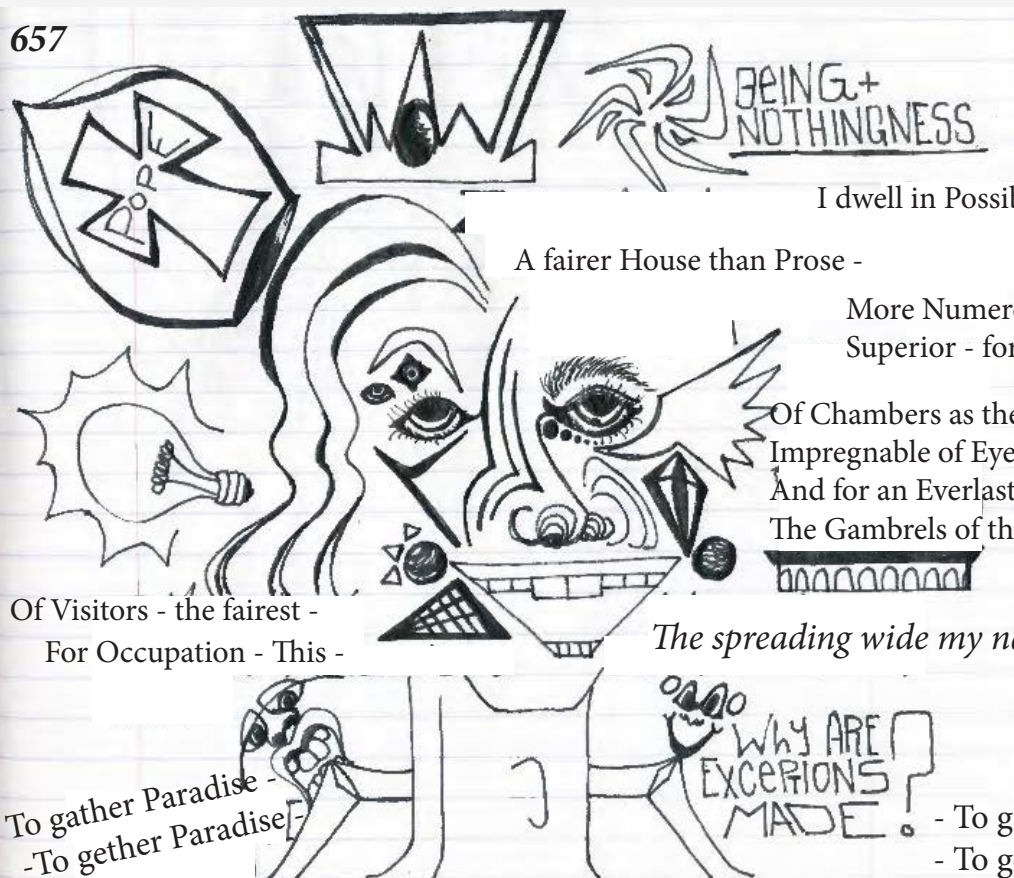 657
POPE
BEING +
NOTHINGNESS
I dwell in Possib
A fairer House than Prose -
More Numero
Superior - for
Of Chambers as the
Impregnable of Eye
And for an Everlast
The Gambrels of th
Of Visitors - the fairest -
For Occupation - This -
The spreading wide my na
WhY ARE
EXCEPTIONS
MADE?
To gather Paradise -
-To gether Paradise -
- To g
- To g